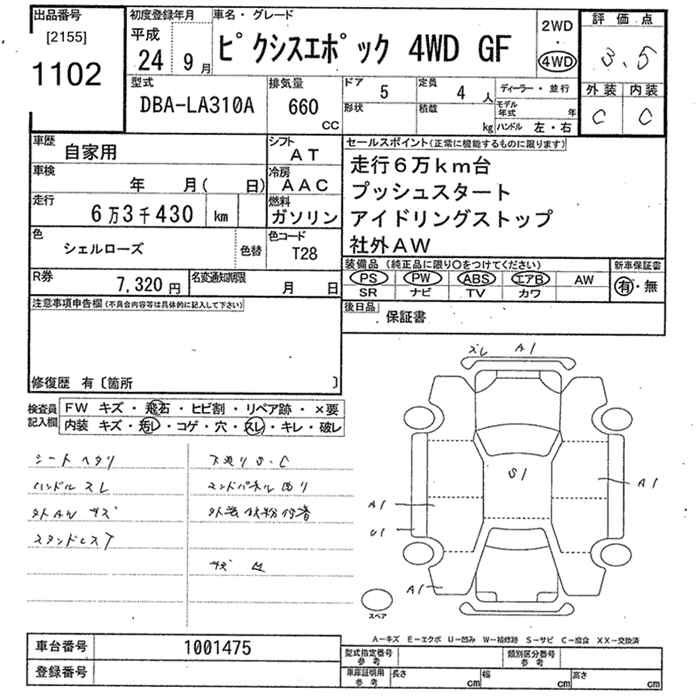 出品番号
[2155]
1102
初度登録年月
平成
24 9月
車名・グレード
ピクシスエポック 4WD GF
2WD
4WD
評価点
3.5
外装 内装
C C
型式
DBA-LA310A
排気量
660
CC
ドア
5
定員
4人
ディーラー・並行
形状
積載
kg
モデル年式
年
ハンドル 左・右
車歴
自家用
シフト
AT
車検
年 月( 日)
冷房
AAC
走行
6万3千430 km
燃料
ガソリン
色
シェルローズ
色替
色コード
T28
R券
7,320円
名変通知期限
月 日
セールスポイント(正常に機能するものに限ります)
走行6万km台
プッシュスタート
アイドリングストップ
社外AW
装備品(純正品に限り○をつけてください)
PS PW ABS エアB AW
SR ナビ TV カワ
新車保証書
有・無
後日品
保証書
注意事項申告欄(不具合内容等は具体的に記入して下さい)
修復歴 有〔箇所 〕
検査員記入欄
FW キズ・飛石・ヒビ割・リペア跡・×要
内装 キズ・汚レ・コゲ・穴・スレ・キレ・破レ
シートヘタリ
下廻りS.C
ハンドルスレ
エンドパネル凹り
外AWキズ
スタンドレスT
スレ A1
S1
A1
A1
U1
A1
スペア
A-キズ E-エクボ U-凹み W-補修跡 S-サビ C-腐食 XX-交換済
車台番号
1001475
登録番号
型式指定番号
参考
類別区分番号
参考
車庫証明用
参考
長さ
cm
幅
cm
高さ
cm